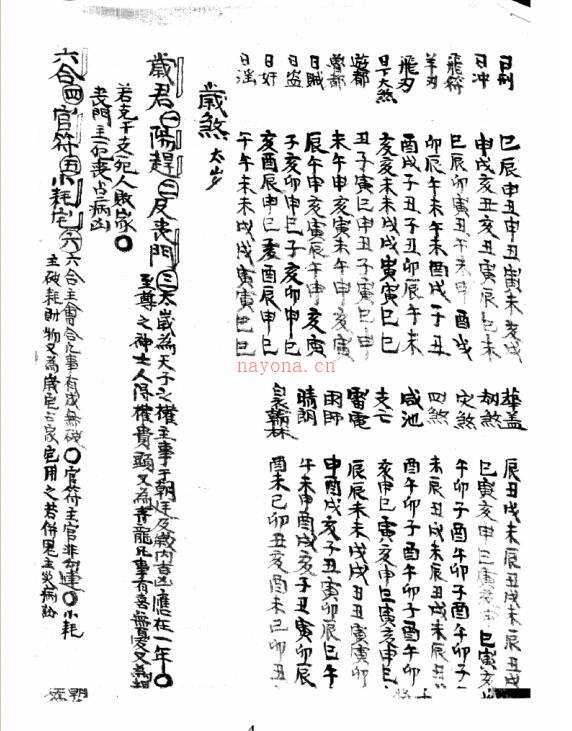 日刑 巳辰申丑申丑寅未亥戌
日冲 申戌亥丑亥丑寅辰巳未
飛符 巳辰卯寅丑午未申酉戌
羊刃 卯辰午未午未酉戌子丑
飛刃 酉戌子丑子丑卯辰午未
大煞 亥亥未未戌戌寅寅巳巳
遊都 丑子寅巳申丑子寅巳申
魯都 未午申亥寅未午申亥寅
日賊 辰午申亥寅辰午申亥寅
日盜 子亥卯申巳子亥卯申巳
日奸 亥酉辰申巳亥酉辰申巳
日淫 午午未未戌戌寅寅巳巳
華盖 辰丑戌未辰丑戌未辰丑戌
劫煞 巳寅亥申巳寅亥申巳寅亥
灾煞 午卯子酉午卯子酉午卯子
四煞 未辰丑戌未辰丑戌未辰丑
咸池 酉午卯子酉午卯子酉午卯
支亡 亥申巳寅亥申巳寅亥申巳
雷電 辰辰未未戌戌丑丑寅寅卯
雨師 申酉戌亥子丑寅卯辰巳午
晴朗 午未申酉戌亥子丑寅卯辰
翰林 酉未巳卯丑亥酉未巳卯
歲煞 太歲
歲君㊀陽趕㊁反丧門㊂太歲為天子之權主事于朝廷反歲内吉凶應在一年〇
至尊之神士人得權貴顯又為青龍凡事有喜無憂又為
若克干支死人敗家〇
丧門主死丧占病凶
六合㊃官符㊄小耗宅㊅六合主會合凡事有成無破〇官符主官非勾連〇小耗
主破耗財物又為歲宅占家宅用之若併鬼主災病訟
nayona.cn
4